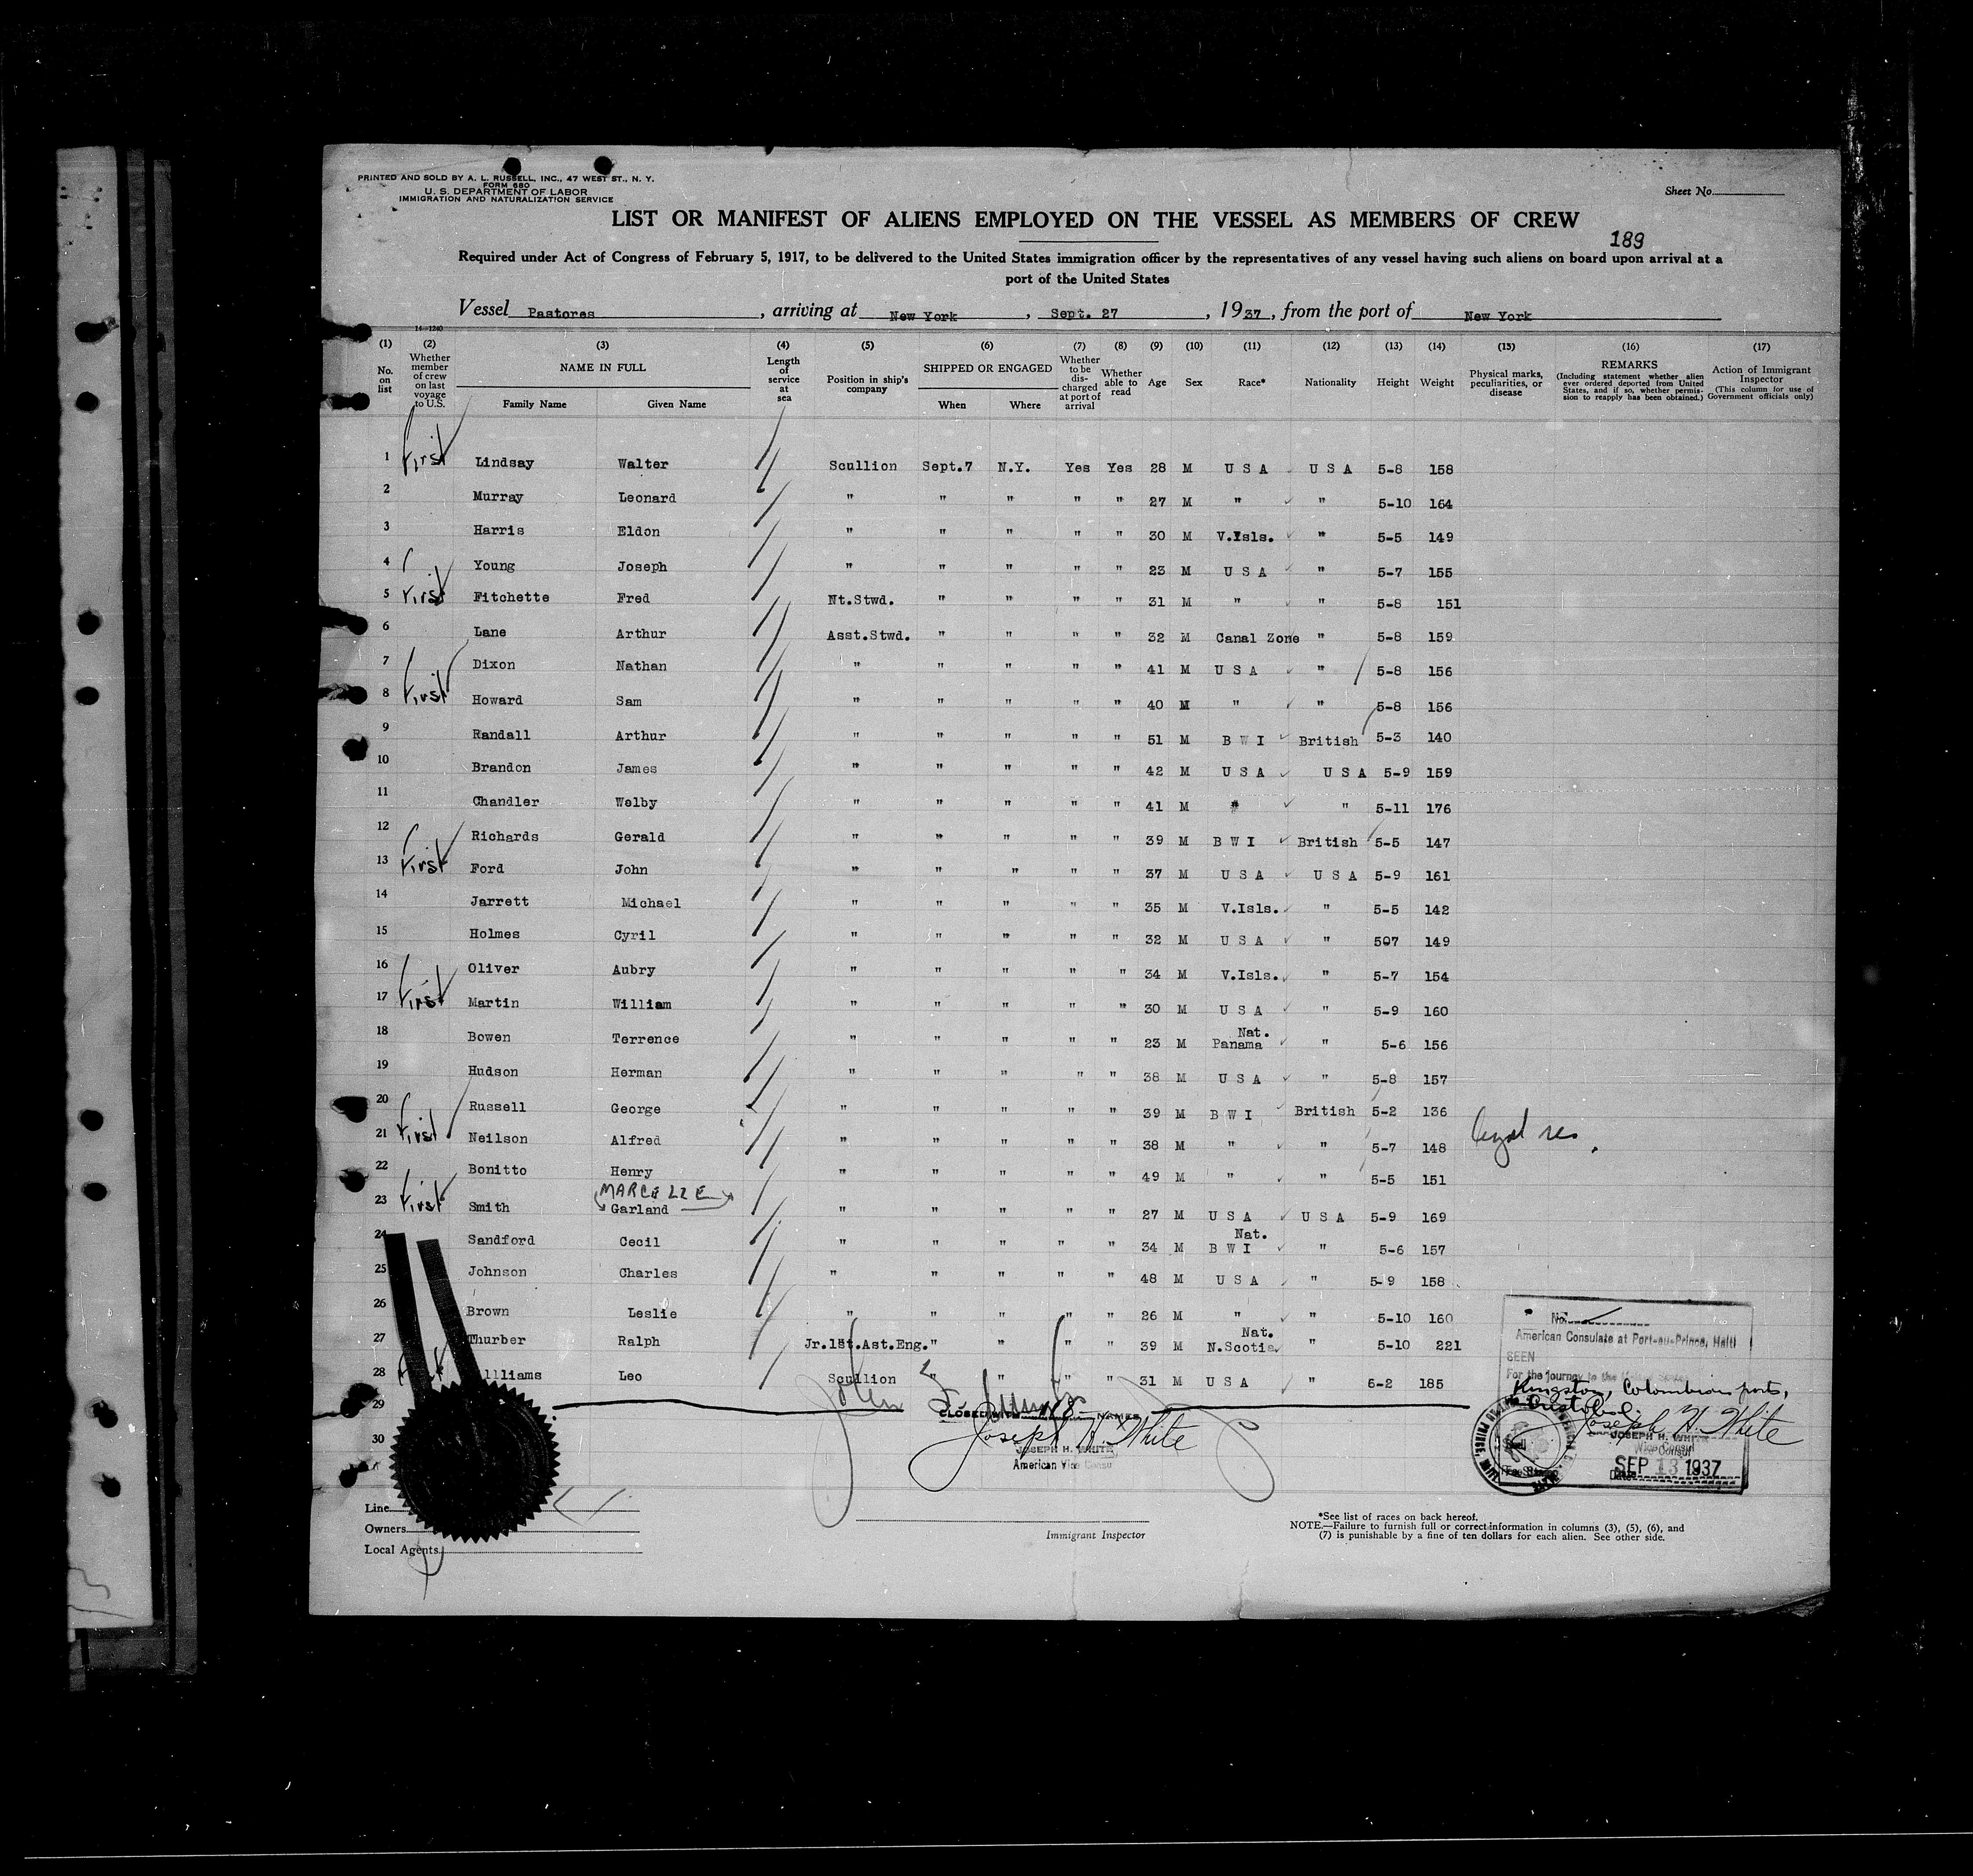 PRINTED AND SOLD BY A. L. RUSSELL, INC., 47 WEST ST., N. Y.
FORM 680
U. S. DEPARTMENT OF LABOR
IMMIGRATION AND NATURALIZATION SERVICE
Sheet No.
LIST OR MANIFEST OF ALIENS EMPLOYED ON THE VESSEL AS MEMBERS OF CREW
189
Required under Act of Congress of February 5, 1917, to be delivered to the United States immigration officer by the representatives of any vessel having such aliens on board upon arrival at a
port of the United States
Vessel Pastores, arriving at New York, Sept. 27, 1937, from the port of New York
14-1240
(1) (2) (3) (4) (5) (6) (7) (8) (9) (10) (11) (12) (13) (14) (15) (16) (17)
No. on list Whether member of crew on last voyage to U.S. NAME IN FULL Family Name Given Name Length of service at sea Position in ship's company SHIPPED OR ENGAGED When Where Whether to be discharged at port of arrival Whether able to read Age Sex Race* Nationality Height Weight Physical marks, peculiarities, or disease REMARKS (Including statement whether alien ever ordered deported from United States, and if so, whether permission to reapply has been obtained.) Action of Immigrant Inspector (This column for use of Government officials only)
1 First Lindsay Walter Scullion Sept.7 N.Y. Yes Yes 28 M U S A U S A 5-8 158
2 Murray Leonard " " " " " 27 M " " 5-10 164
3 Harris Eldon " " " " " 30 M V.Isls. " 5-5 149
4 Young Joseph " " " " " 23 M U S A " 5-7 155
5 First Fitchette Fred Nt.Stwd. " " " " 31 M " " 5-8 151
6 Lane Arthur Asst.Stwd. " " " " 32 M Canal Zone " 5-8 159
7 Dixon Nathan " " " " " 41 M U S A " 5-8 156
8 First Howard Sam " " " " " 40 M " " 5-8 156
9 Randall Arthur " " " " " 51 M B W I British 5-3 140
10 Brandon James " " " " " 42 M U S A U S A 5-9 159
11 Chandler Welby " " " " " 41 M " " 5-11 176
12 Richards Gerald " " " " " 39 M B W I British 5-5 147
13 First Ford John " " " " " 37 M U S A U S A 5-9 161
14 Jarrett Michael " " " " " 35 M V.Isls. " 5-5 142
15 Holmes Cyril " " " " " 32 M U S A " 507 149
16 Oliver Aubry " " " " " 34 M V.Isls. " 5-7 154
17 First Martin William " " " " " 30 M U S A " 5-9 160
18 Bowen Terrence " " " " " 23 M Nat. Panama " 5-6 156
19 Hudson Herman " " " " " 38 M U S A " 5-8 157
20 Russell George " " " " " 39 M B W I British 5-2 136
21 First Neilson Alfred " " " " " 38 M " " 5-7 148 legal res.
22 Bonitto Henry " " " " " 49 M " " 5-5 151
MARCELLE
23 First Smith Garland " " " " " 27 M U S A U S A 5-9 169
24 Sandford Cecil " " " " " 34 M Nat. B W I " 5-6 157
25 Johnson Charles " " " " " 48 M U S A " 5-9 158
26 Brown Leslie " " " " " 26 M " " 5-10 160
27 Thurber Ralph Jr.1st.Ast.Eng. " " " " 39 M Nat. N.Scotia " 5-10 221
28 Williams Leo Scullion " " " " 31 M U S A " 6-2 185
29
30
CLOSED WITH 28 NAMES
Joseph H. White
JOSEPH H. WHITE
American Vice Consul
No.
American Consulate at Port-au-Prince, Haiti
SEEN
For the journey to the United States
Kingston, Colombian ports,
Cristobal.
Joseph H. White
JOSEPH H. WHITE
Vice Consul
Date SEP 13 1937
Line
Owners
Local Agents
Immigrant Inspector
*See list of races on back hereof.
NOTE.—Failure to furnish full or correct information in columns (3), (5), (6), and
(7) is punishable by a fine of ten dollars for each alien. See other side.